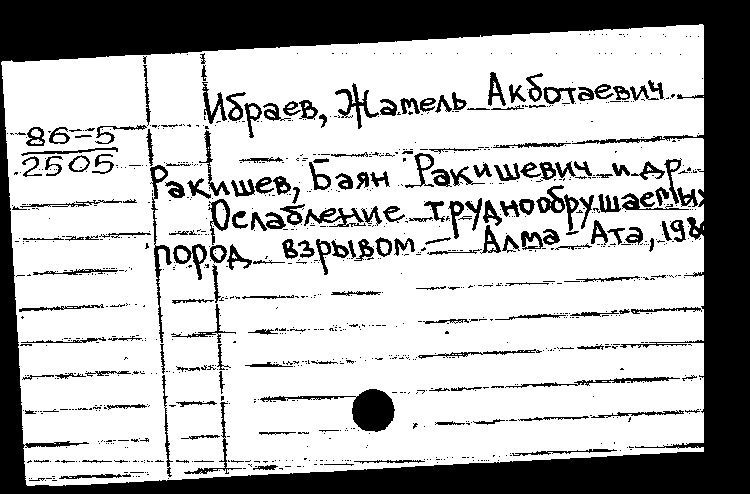 Ибраев, Жатель Акботаевич.
86-5
2505
Ракишев, Баян Ракишевич и др.
Ослабление труднообрушаемых
пород взрывом. – Алма-Ата,